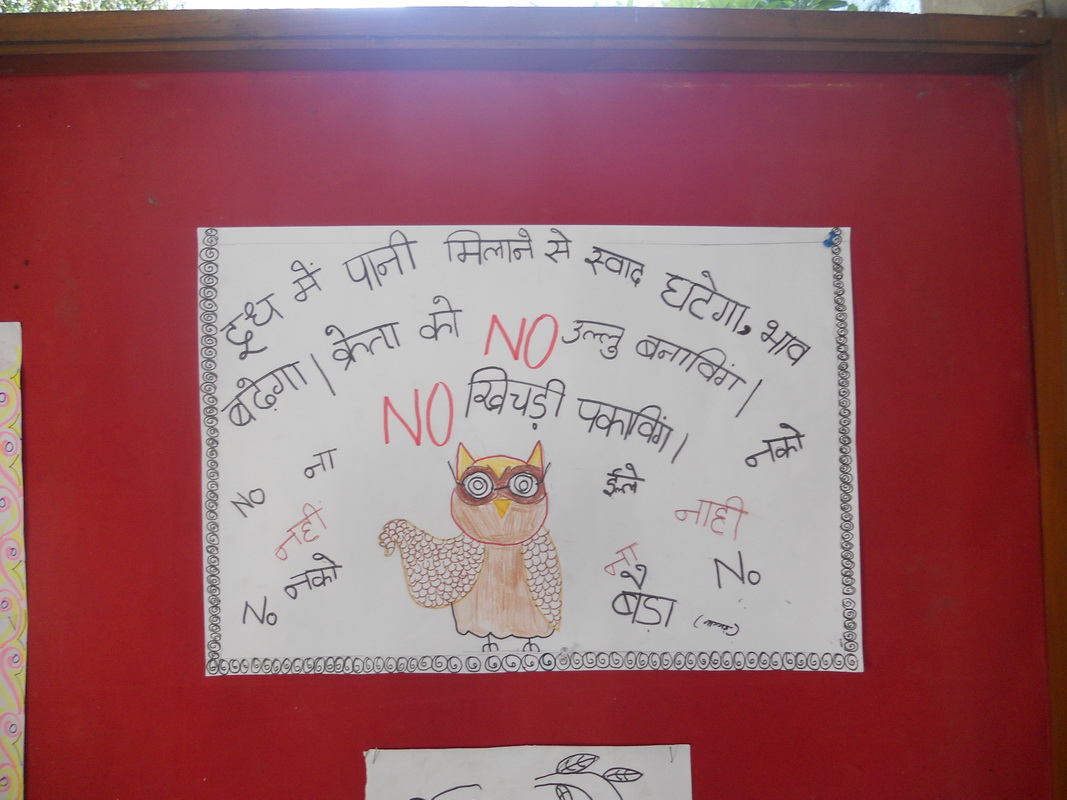 दूध में पानी मिलाने से स्वाद घटेगा, भाव
बढ़ेगा। क्रेता को NO उल्लु बनाविंग।
NO खिचड़ी पकाविंग।
नको
ना
ईल्ले
No
नाही
नहीं
ना
नको
No
बैड़ा
No